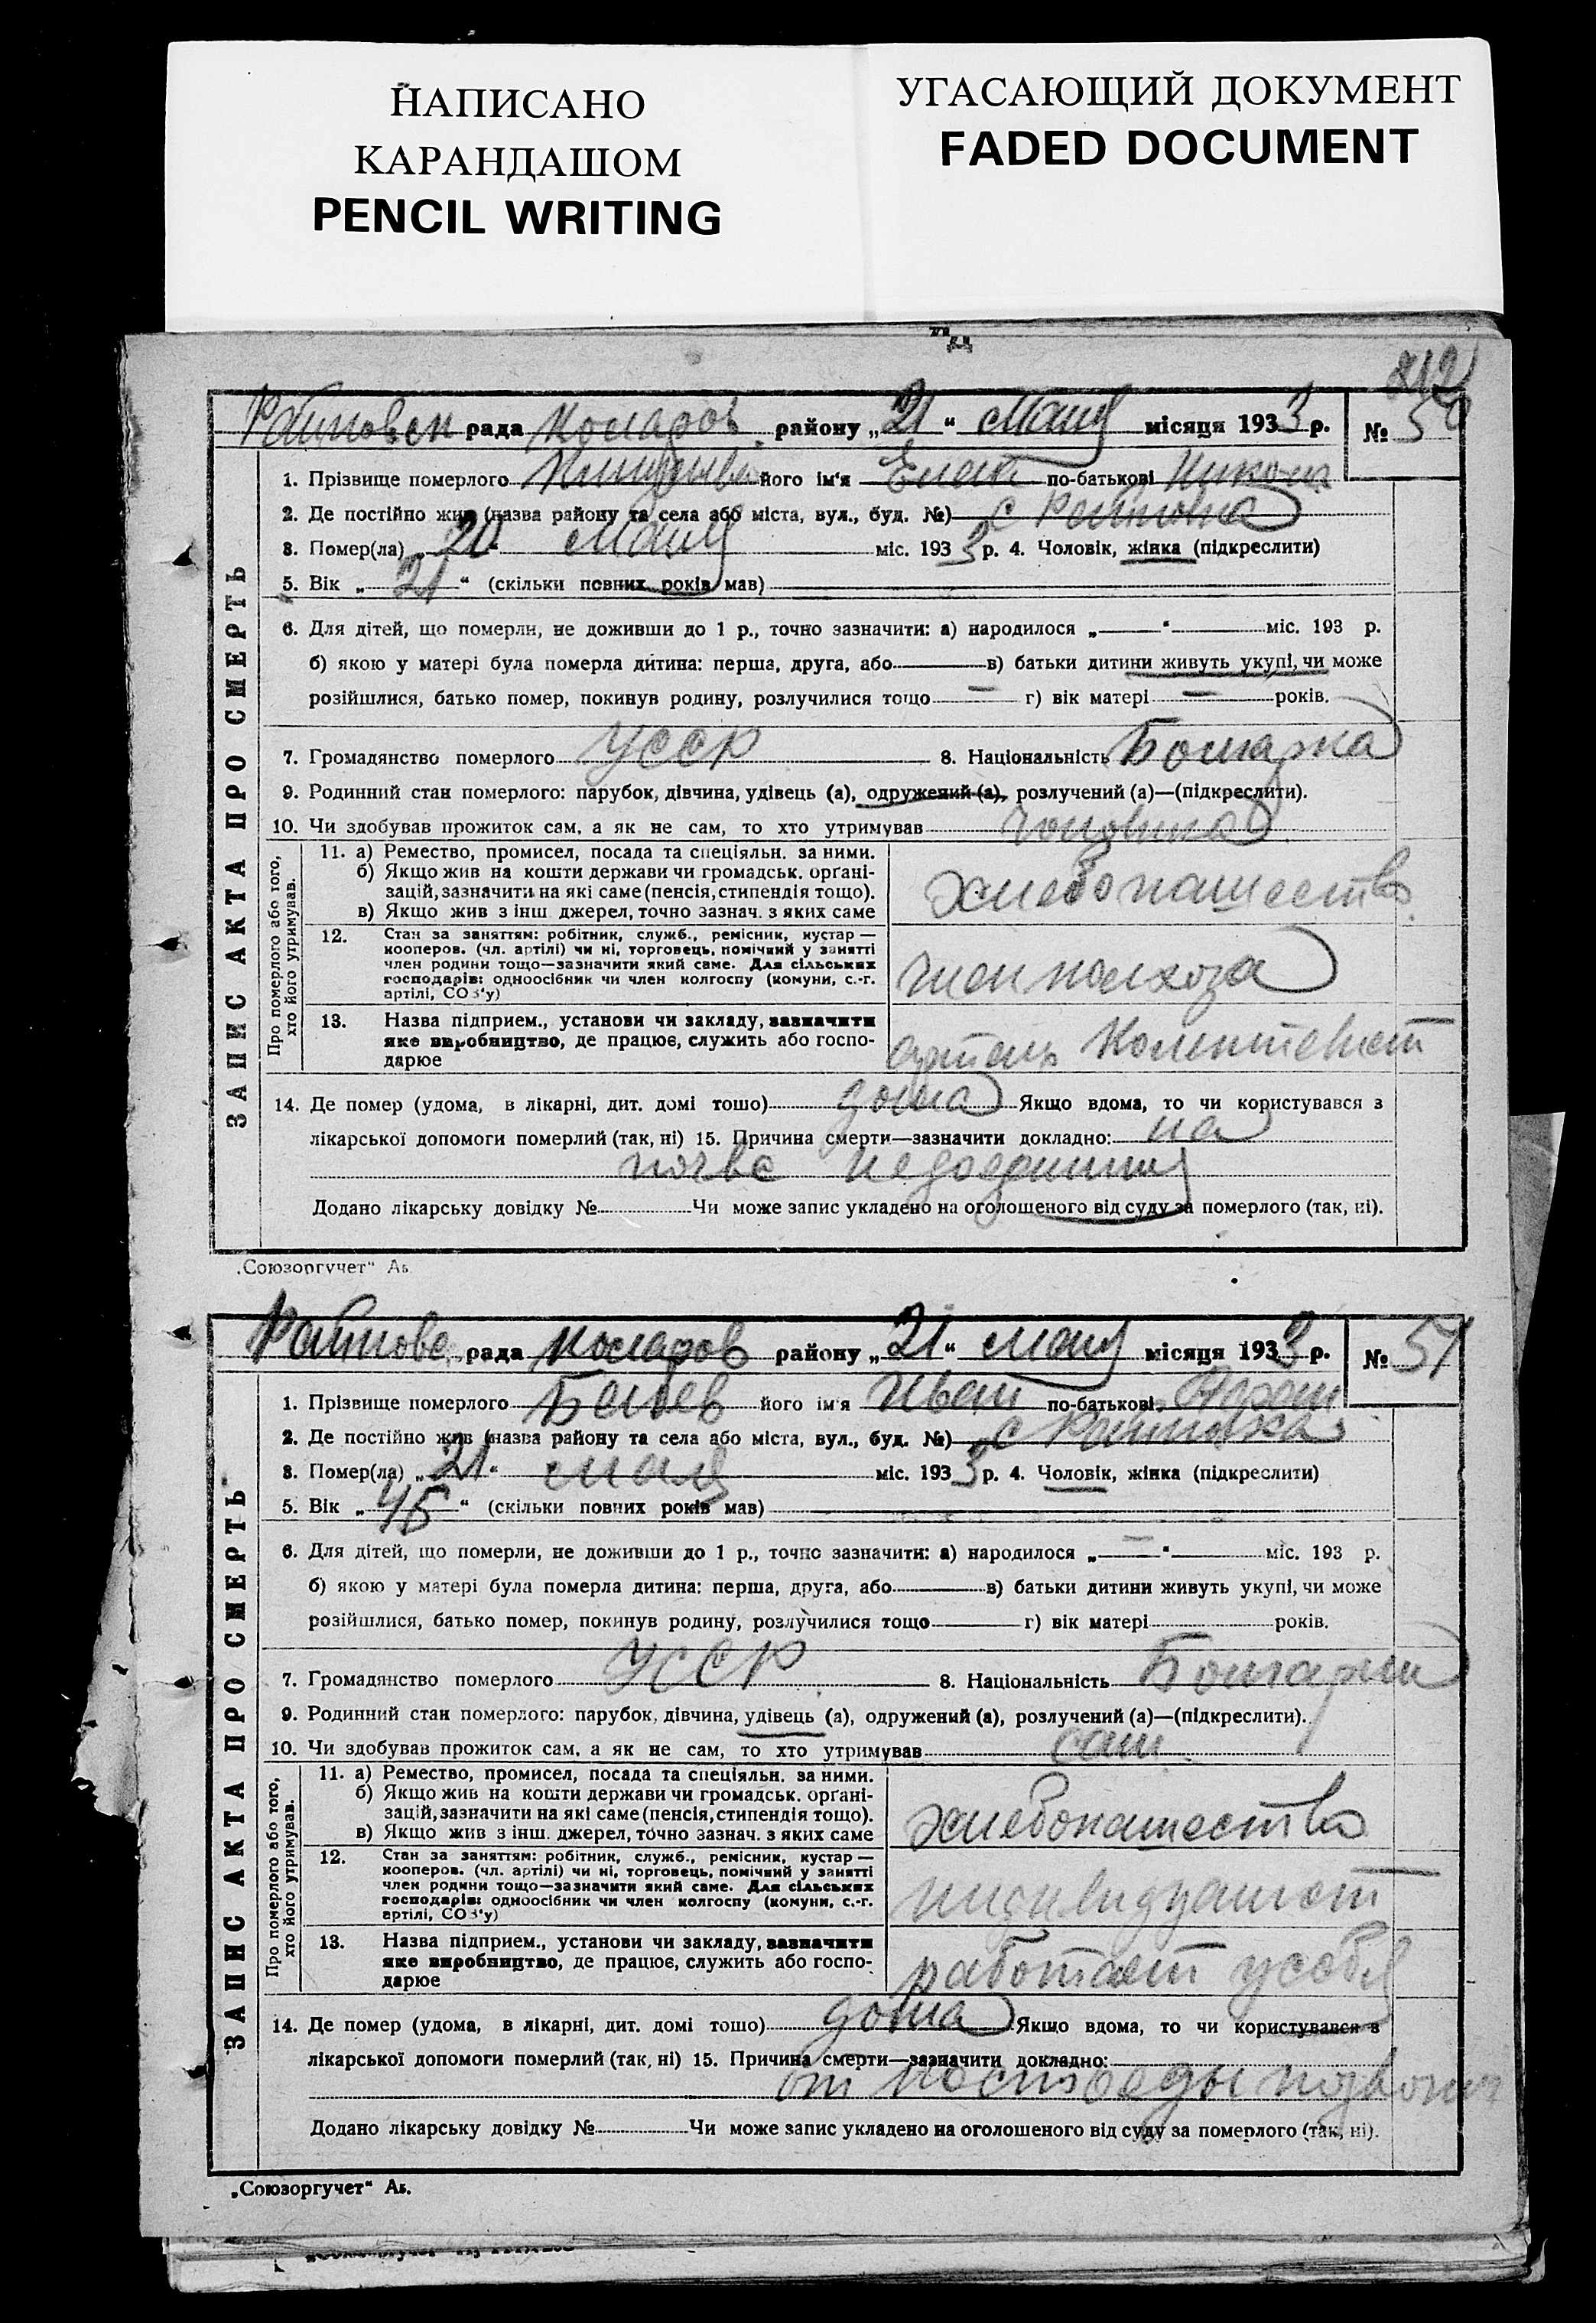 НАПИСАНО
КАРАНДАШОМ
PENCIL WRITING
УГАСАЮЩИЙ ДОКУМЕНТ
FADED DOCUMENT
212
рада Коларов району „21“ Мая місяця 1933 р. № 50
ЗАПИС АКТА ПРО СМЕРТЬ
1. Прізвище померлого його ім'я Елена по-батькові Никола
2. Де постійно жив (назва району та села або міста, вул., буд. №) с
3. Помер(ла) „20“ Мая міс. 1933 р. 4. Чоловік, жінка (підкреслити)
5. Вік „21“ (скільки повних років мав)
6. Для дітей, що померли, не доживши до 1 р., точно зазначити: а) народилося „—“ міс. 193 р.
б) якою у матері була померла дитина: перша, друга, або в) батьки дитини живуть укупі, чи може
розійшлися, батько помер, покинув родину, розлучилися тощо — г) вік матері — років.
7. Громадянство померлого УССР 8. Національність Болгарка
9. Родинний стан померлого: парубок, дівчина, удівець (а), одружений (а), розлучений (а)—(підкреслити).
10. Чи здобував прожиток сам, а як не сам, то хто утримував
Про померлого або того, хто його утримував.
11. а) Ремество, промисел, посада та спеціяльн. за ними.
б) Якщо жив на кошти держави чи громадськ. орґані-
зацій, зазначити на які саме (пенсія, стипендія тощо).
в) Якщо жив з інш. джерел, точно зазнач. з яких саме
хлебопашество
12. Стан за заняттям: робітник, служб., ремісник, кустар —
кооперов. (чл. артілі) чи ні, торговець, помічний у занятті
член родини тощо—зазначити який саме. Для сільських
господарів: одноосібник чи член колгоспу (комуни, с.-г.
артілі, СОЗ'у)
член колхоза
13. Назва підприєм., установи чи закладу, зазначити
яке виробництво, де працює, служить або госпо-
дарює
артель
14. Де помер (удома, в лікарні, дит. домі тощо) дома Якщо вдома, то чи користувався з
лікарської допомоги померлий (так, ні) 15. Причина смерти—зазначити докладно: на
почве недоедания
Додано лікарську довідку № Чи може запис укладено на оголошеного від суду за померлого (так, ні).
„Союзоргучет“ Аб.
рада Коларов району „21“ Мая місяця 1933 р. № 51
ЗАПИС АКТА ПРО СМЕРТЬ
1. Прізвище померлого його ім'я Иван по-батькові
2. Де постійно жив (назва району та села або міста, вул., буд. №) с
3. Помер(ла) „21“ Мая міс. 1933 р. 4. Чоловік, жінка (підкреслити)
5. Вік „45“ (скільки повних років мав)
6. Для дітей, що померли, не доживши до 1 р., точно зазначити: а) народилося „—“ міс. 193 р.
б) якою у матері була померла дитина: перша, друга, або в) батьки дитини живуть укупі, чи може
розійшлися, батько помер, покинув родину, розлучилися тощо г) вік матері років.
7. Громадянство померлого УССР 8. Національність Болгарин
9. Родинний стан померлого: парубок, дівчина, удівець (а), одружений (а), розлучений (а)—(підкреслити).
10. Чи здобував прожиток сам, а як не сам, то хто утримував сам
Про померлого або того, хто його утримував.
11. а) Ремество, промисел, посада та спеціяльн. за ними.
б) Якщо жив на кошти держави чи громадськ. орґані-
зацій, зазначити на які саме (пенсія, стипендія тощо).
в) Якщо жив з інш. джерел, точно зазнач. з яких саме
хлебопашество
12. Стан за заняттям: робітник, служб., ремісник, кустар —
кооперов. (чл. артілі) чи ні, торговець, помічний у занятті
член родини тощо—зазначити який саме. Для сільських
господарів: одноосібник чи член колгоспу (комуни, с.-г.
артілі, СОЗ'у)
13. Назва підприєм., установи чи закладу, зазначити
яке виробництво, де працює, служить або госпо-
дарює
работает усебя
14. Де помер (удома, в лікарні, дит. домі тощо) дома Якщо вдома, то чи користувався з
лікарської допомоги померлий (так, ні) 15. Причина смерти—зазначити докладно:
от
Додано лікарську довідку № Чи може запис укладено на оголошеного від суду за померлого (так, ні).
„Союзоргучет“ Аб.